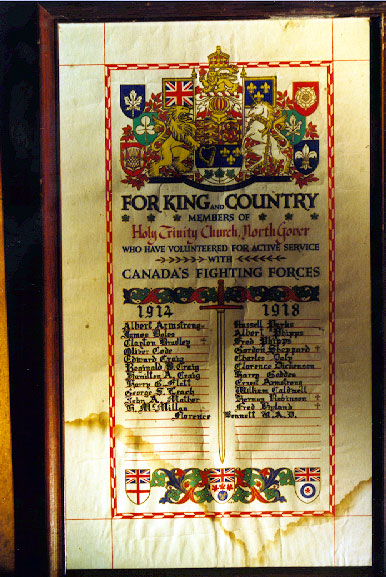 FOR KING AND COUNTRY
MEMBERS OF
Holy Trinity Church, North Gower
WHO HAVE VOLUNTEERED FOR ACTIVE SERVICE
WITH
CANADA'S FIGHTING FORCES
1914 1918
Albert Armstrong
James Boles
Clayton Bradley †
Oliver Code
Edward Craig
Reginald B. Craig
Hamilton A. Craig
Harry G. Flett
George S.
John A.
H. McMillan
Russell Parks
Albert Phipps
Fred Phipps
Gordon Sheppard †
Charles Daly
Clarence Dickenson
Harry Godden
Ernest Armstrong
William Caldwell
Vernon Robinson †
Fred Hyland †
Florence Bennett V.A.D.